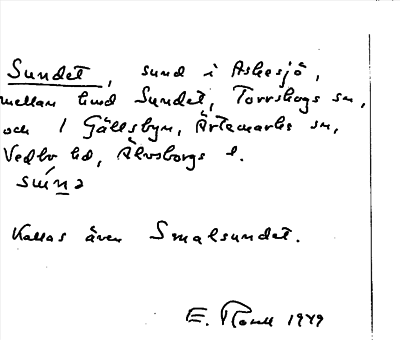 Sundet, sund i Askesjö,
mellan hmd Sundet, Torrskogs sn,
och 1 Gällsbyn, Ärtemarks sn,
Vedbo hd, Älvsborgs l.
Kallas även Smalsundet.
E. 1949